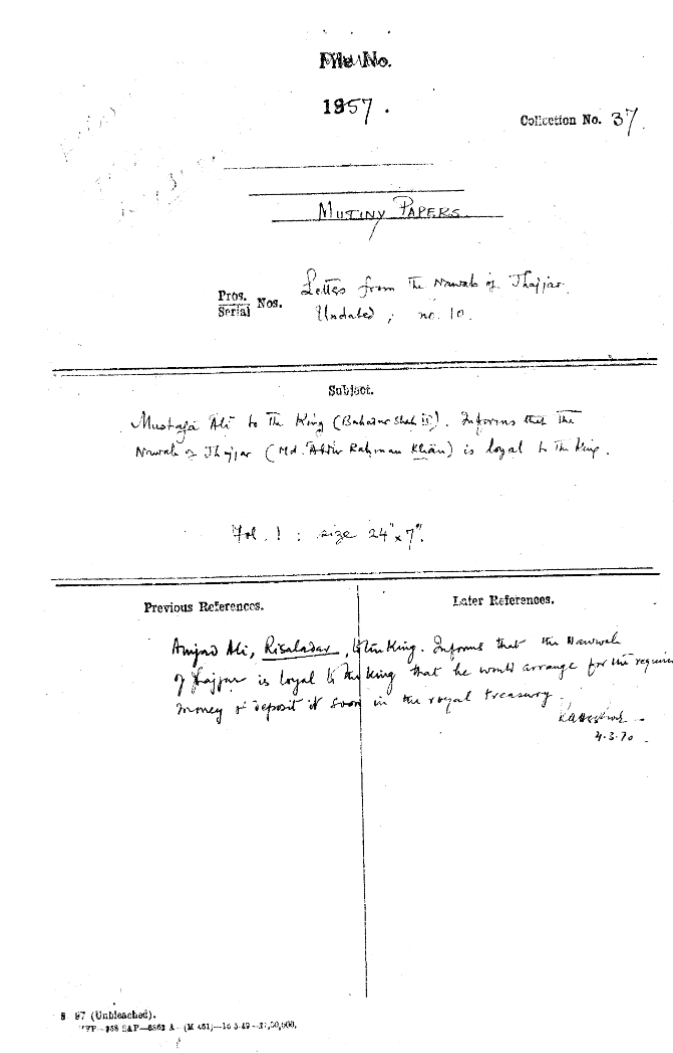 File No.
1857.
Collection No. 37.
MUTINY PAPERS.
Pros.
Serial Nos.
Letters from the Nawab of Jhajjar.
Undated; no. 10.
Subject.
Mustafa Ali to the King (Bahadur Shah II). Informs that the
Nawab of Jhajjar (Md. Abdur Rahman Khan) is loyal to the King.
Fol. 1 : size 24" x 7".
Previous References.
Later References.
Amjad Ali, Risaladar, to the King. Informs that the Nawwab
of Jhajjar is loyal to the King that he would arrange for the require
money & deposit it soon in the royal treasury.
4.3.70
S 97 (Unbleached).